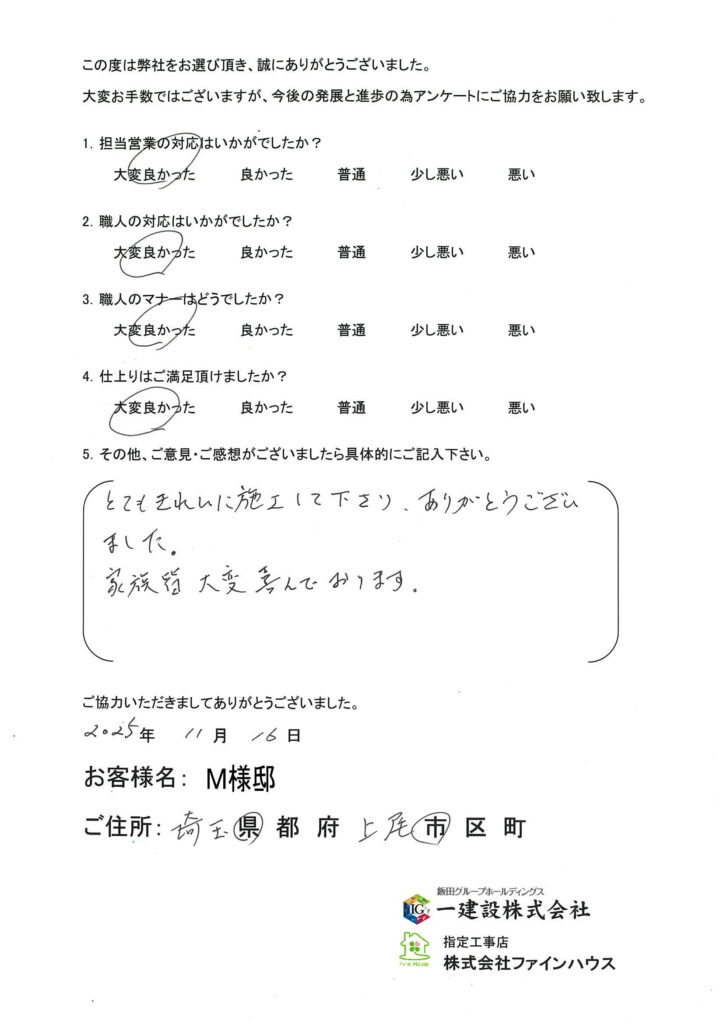 この度は弊社をお選び頂き、誠にありがとうございました。
大変お手数ではございますが、今後の発展と進歩の為アンケートにご協力をお願い致します。
1. 担当営業の対応はいかがでしたか？
大変良かった 良かった 普通 少し悪い 悪い
2. 職人の対応はいかがでしたか？
大変良かった 良かった 普通 少し悪い 悪い
3. 職人のマナーはどうでしたか？
大変良かった 良かった 普通 少し悪い 悪い
4. 仕上りはご満足頂けましたか？
大変良かった 良かった 普通 少し悪い 悪い
5. その他、ご意見・ご感想がございましたら具体的にご記入下さい。
とてもきれいに施工して下さり、ありがとうござい
ました。
家族皆 大変喜んでおります。
ご協力いただきましてありがとうございました。
2025年 11月 16日
お客様名： M様邸
ご住所： 埼玉県 都 府 上尾市 区 町
飯田グループホールディングス
IG 一建設株式会社
指定工事店
Fine House 株式会社ファインハウス